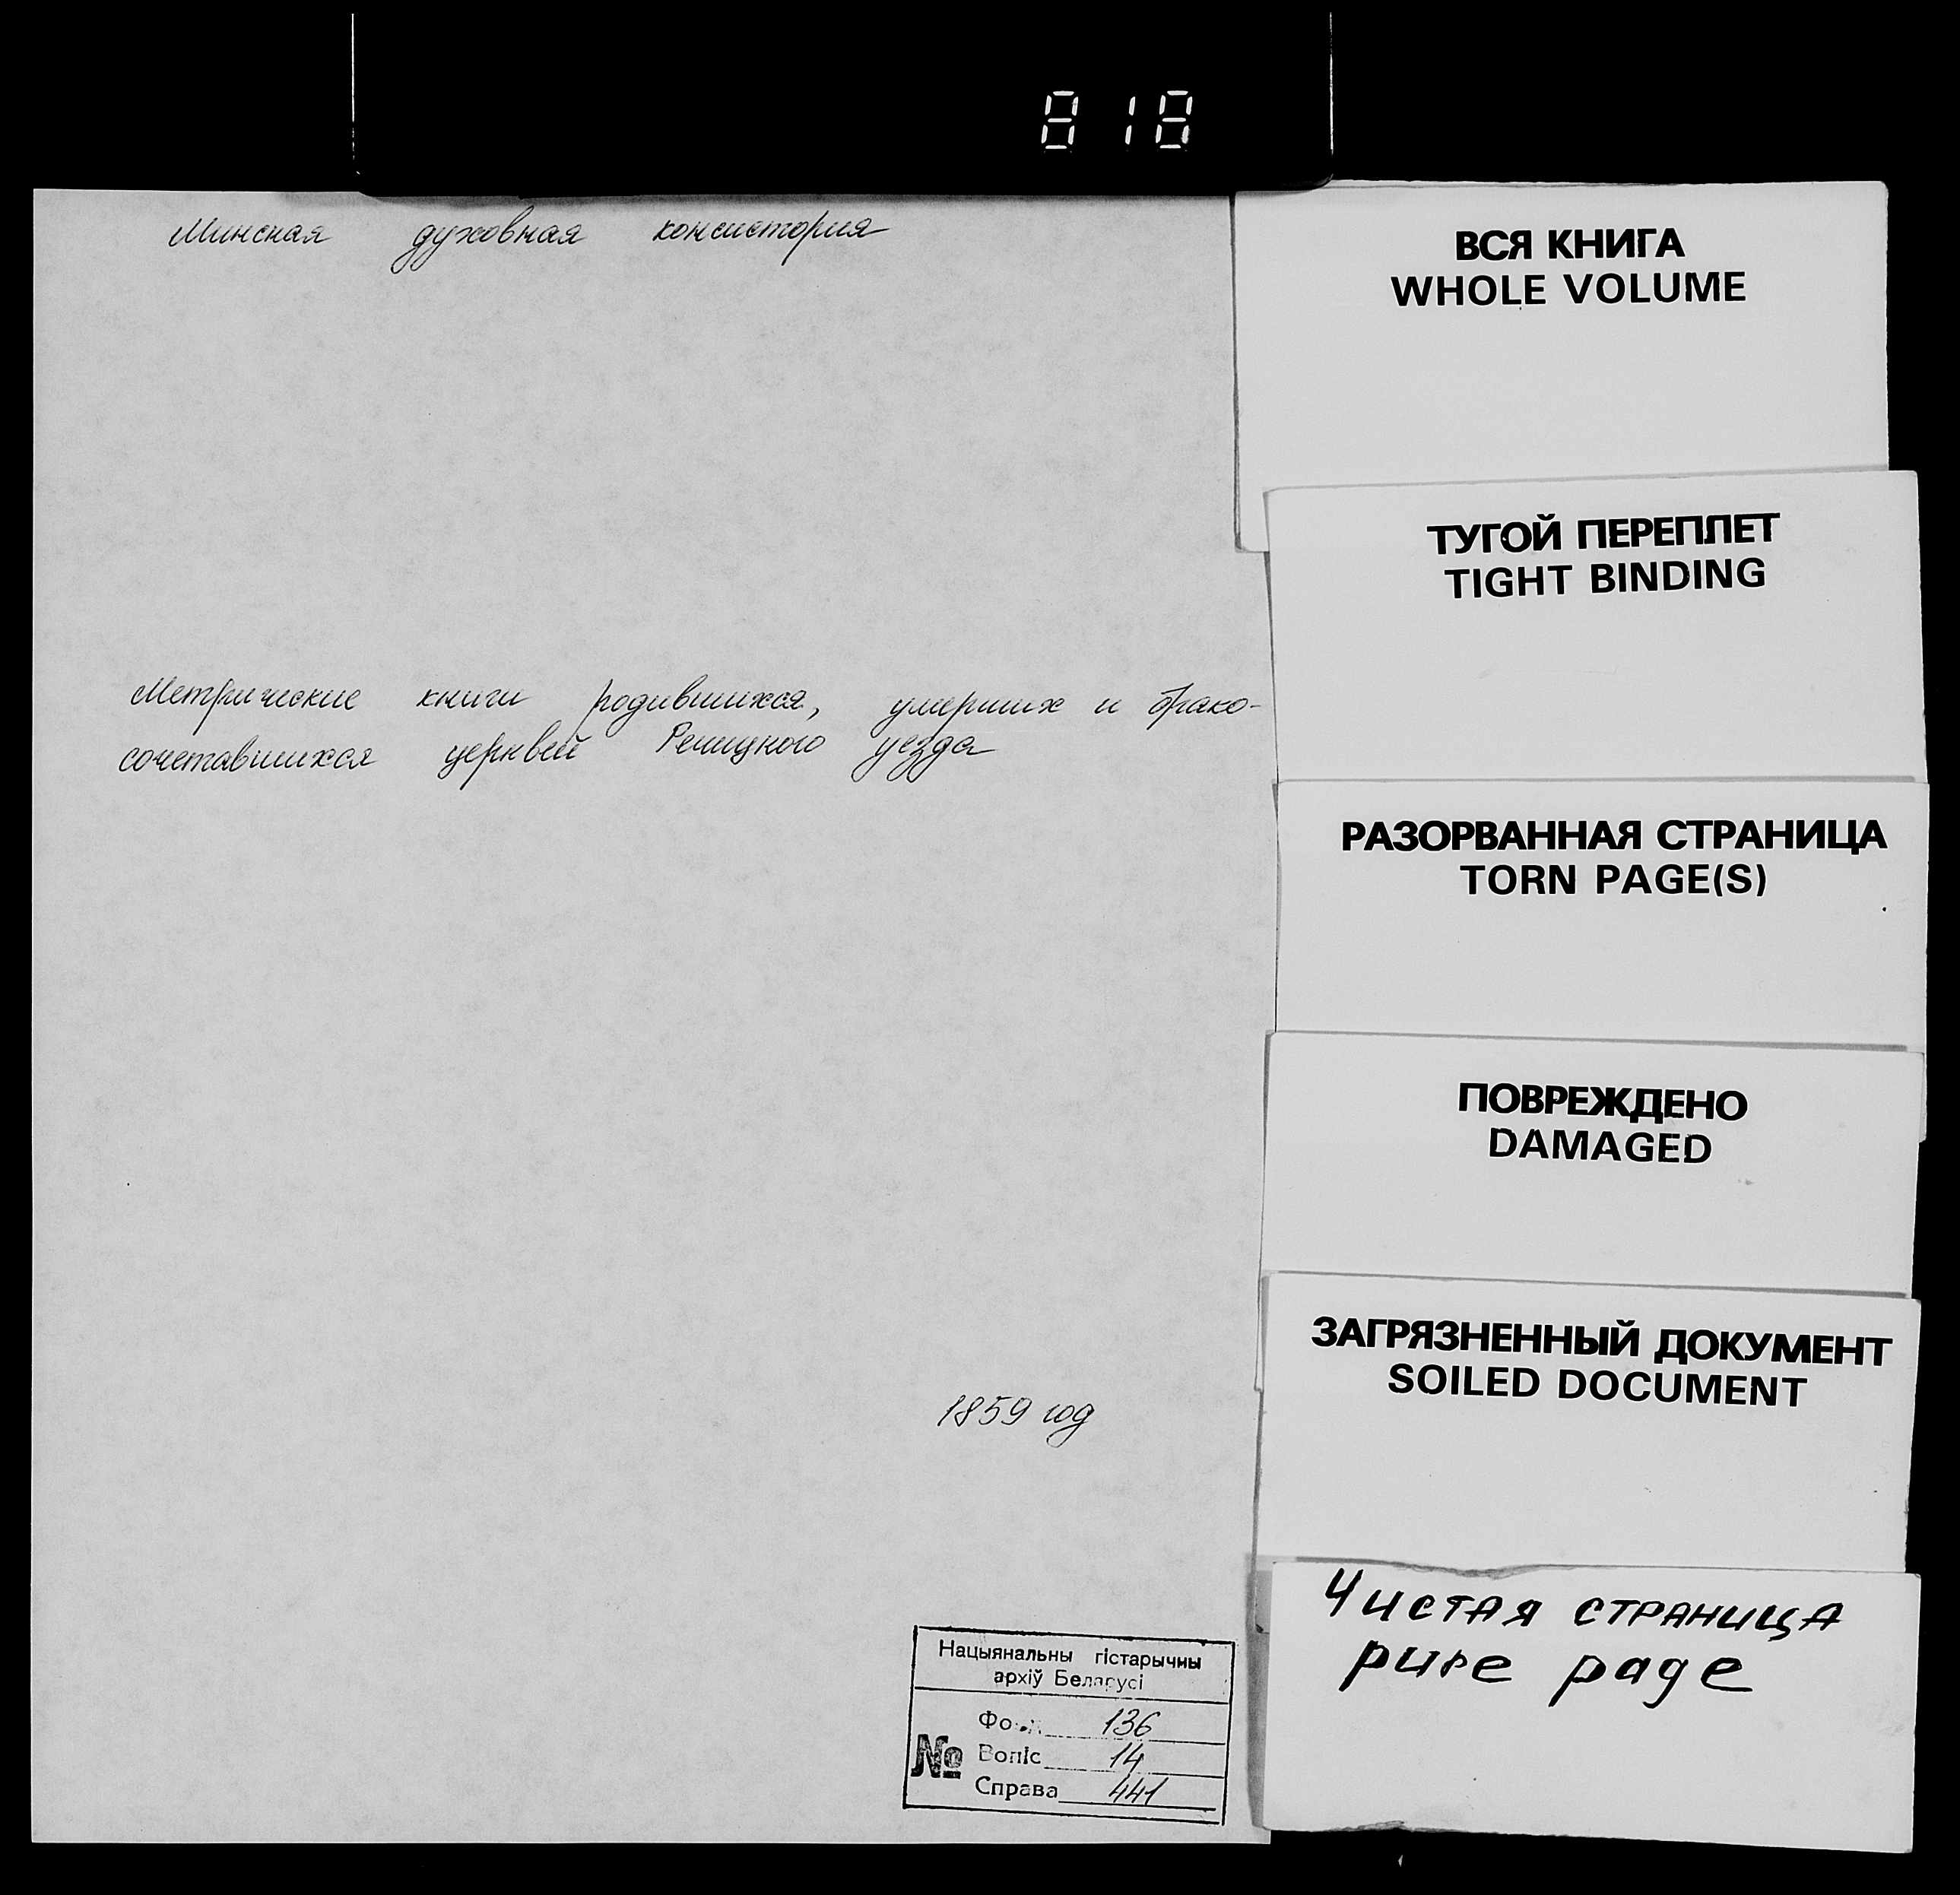 818
Минская духовная консистория
Метрические книги родившихся, умерших и брако-
сочетавшихся церквей Речицкого уезда
1859 год
Нацыянальны гістарычны
архіў Беларусі
Фонд 136
№ Вопіс 14
Справа 441
ВСЯ КНИГА
WHOLE VOLUME
ТУГОЙ ПЕРЕПЛЕТ
TIGHT BINDING
РАЗОРВАННАЯ СТРАНИЦА
TORN PAGE(S)
ПОВРЕЖДЕНО
DAMAGED
ЗАГРЯЗНЕННЫЙ ДОКУМЕНТ
SOILED DOCUMENT
Чистая страница
pure page